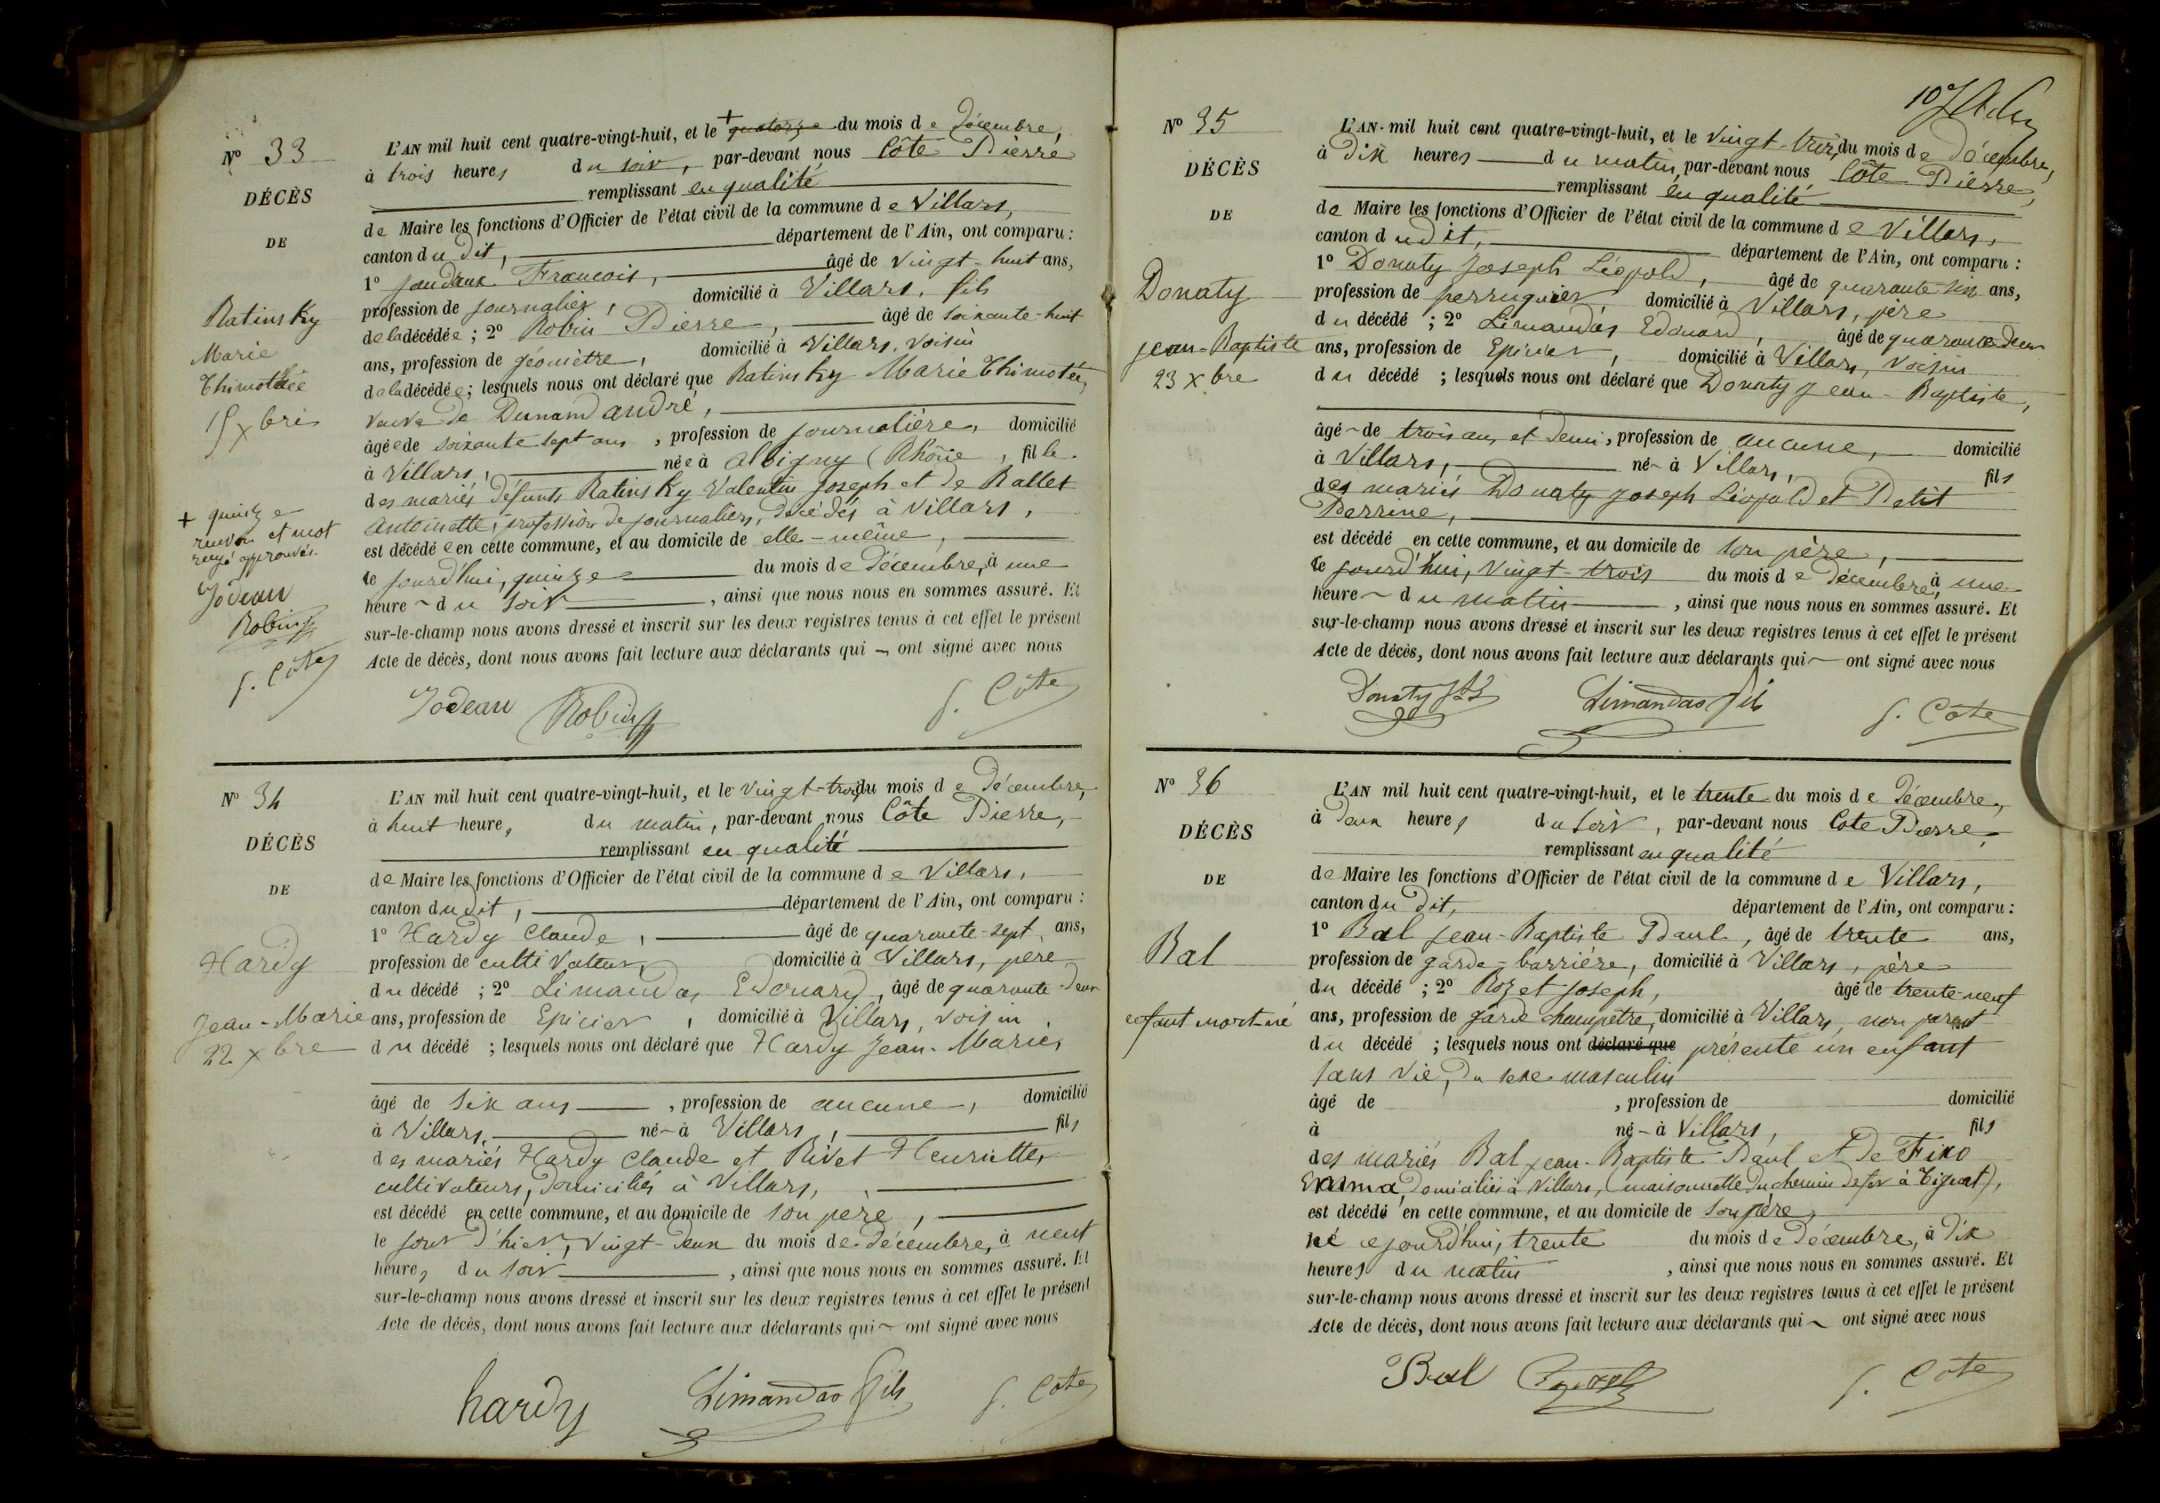 Nº 33
DÉCÈS
DE
Ratinsky
Marie
Thimotée
15 xbre
+ quinze
renvoi et mot
rayé approuvés.
Jodeau
Robin
P. Côte
L'AN mil huit cent quatre-vingt-huit, et le + quatorze du mois de Décembre,
à trois heures du soir, par-devant nous Côte Pierre
remplissant en qualité
de Maire les fonctions d'Officier de l'état civil de la commune de Villars,
canton du dit, département de l'Ain, ont comparu :
1º François, âgé de vingt-huit ans,
profession de journalier, domicilié à Villars, fils
de la décédée ; 2º Robin Pierre, âgé de soixante-huit
ans, profession de géomètre, domicilié à Villars, voisin
de la décédée ; lesquels nous ont déclaré que Ratinsky Marie Thimotée,
veuve de Dunand André,
âgée de soixante sept ans, profession de journalière, domicilié
à Villars, née à Albigny (Rhône, fille
des mariés défunts Ratinsky Valentin Joseph et de Rallet
Antoinette, profession de journaliers, décédés à Villars,
est décédée en cette commune, et au domicile de elle-même,
le jourd'hui, quinze du mois de Décembre, à une
heure du soir, ainsi que nous nous en sommes assuré. Et
sur-le-champ nous avons dressé et inscrit sur les deux registres tenus à cet effet le présent
Acte de décès, dont nous avons fait lecture aux déclarants qui ont signé avec nous
Jodeau Robin P. Côte
Nº 34
DÉCÈS
DE
Hardy
Jean-Marie
22 xbre
L'AN mil huit cent quatre-vingt-huit, et le vingt-trois du mois de Décembre,
à huit heures du matin, par-devant nous Côte Pierre,
remplissant en qualité
de Maire les fonctions d'Officier de l'état civil de la commune de Villars,
canton du dit, département de l'Ain, ont comparu :
1º Hardy Claude, âgé de quarante-sept ans,
profession de cultivateur, domicilié à Villars, père
du décédé ; 2º Limandas Edouard, âgé de quarante-deux
ans, profession de Epicier, domicilié à Villars, voisin
du décédé ; lesquels nous ont déclaré que Hardy Jean-Marie,
âgé de six ans, profession de aucune, domicilié
à Villars, né à Villars, fils
des mariés Hardy Claude et Rivet Henriette,
cultivateurs, domiciliés à Villars,
est décédé en cette commune, et au domicile de son père,
le jour d'hier, vingt-deux du mois de Décembre, à neuf
heures du soir, ainsi que nous nous en sommes assuré. Et
sur-le-champ nous avons dressé et inscrit sur les deux registres tenus à cet effet le présent
Acte de décès, dont nous avons fait lecture aux déclarants qui ont signé avec nous
hardy Limandas fils P. Côte
Nº 35
DÉCÈS
DE
Donaty
Jean-Baptiste
23 xbre
L'AN mil huit cent quatre-vingt-huit, et le vingt-trois du mois de Décembre,
à Dix heures du matin, par-devant nous Côte Pierre,
remplissant en qualité
de Maire les fonctions d'Officier de l'état civil de la commune de Villars,
canton du dit, département de l'Ain, ont comparu :
1º Donaty Joseph Léopold, âgé de quarante six ans,
profession de perruquier, domicilié à Villars, père
du décédé ; 2º Limandas Edouard, âgé de quarante deux
ans, profession de Epicier, domicilié à Villars, voisin
du décédé ; lesquels nous ont déclaré que Donaty Jean-Baptiste,
âgé de trois ans et demi, profession de aucune, domicilié
à Villars, né à Villars, fils
des mariés Donaty Joseph Léopold et Petit
Perrine,
est décédé en cette commune, et au domicile de son père,
le jourd'hui, vingt-trois du mois de Décembre, à une
heure du matin, ainsi que nous nous en sommes assuré. Et
sur-le-champ nous avons dressé et inscrit sur les deux registres tenus à cet effet le présent
Acte de décès, dont nous avons fait lecture aux déclarants qui ont signé avec nous
Donaty Limandas fils P. Côte
Nº 36
DÉCÈS
DE
Bal
enfant mort-né
L'AN mil huit cent quatre-vingt-huit, et le trente du mois de Décembre,
à Deux heures du soir, par-devant nous Cote Pierre,
remplissant en qualité
de Maire les fonctions d'Officier de l'état civil de la commune de Villars,
canton du dit, département de l'Ain, ont comparu :
1º Bal Jean-Baptiste Paul, âgé de trente ans,
profession de garde-barrière, domicilié à Villars, père
du décédé ; 2º Rozet Joseph, âgé de trente-neuf
ans, profession de garde champêtre, domicilié à Villars, non parent
du décédé ; lesquels nous ont déclaré que présenté un enfant
sans vie, du sexe masculin
âgé de , profession de domicilié
à né à Villars, fils
des mariés Bal Jean-Baptiste Paul et de Fixo
Emma, domiciliés à Villars, (maisonnette du chemin de fer à ),
est décédé en cette commune, et au domicile de son père,
né cejourd'hui, trente du mois de Décembre, à Dix
heures du matin, ainsi que nous nous en sommes assuré. Et
sur-le-champ nous avons dressé et inscrit sur les deux registres tenus à cet effet le présent
Acte de décès, dont nous avons fait lecture aux déclarants qui ont signé avec nous
Bal P. Cote